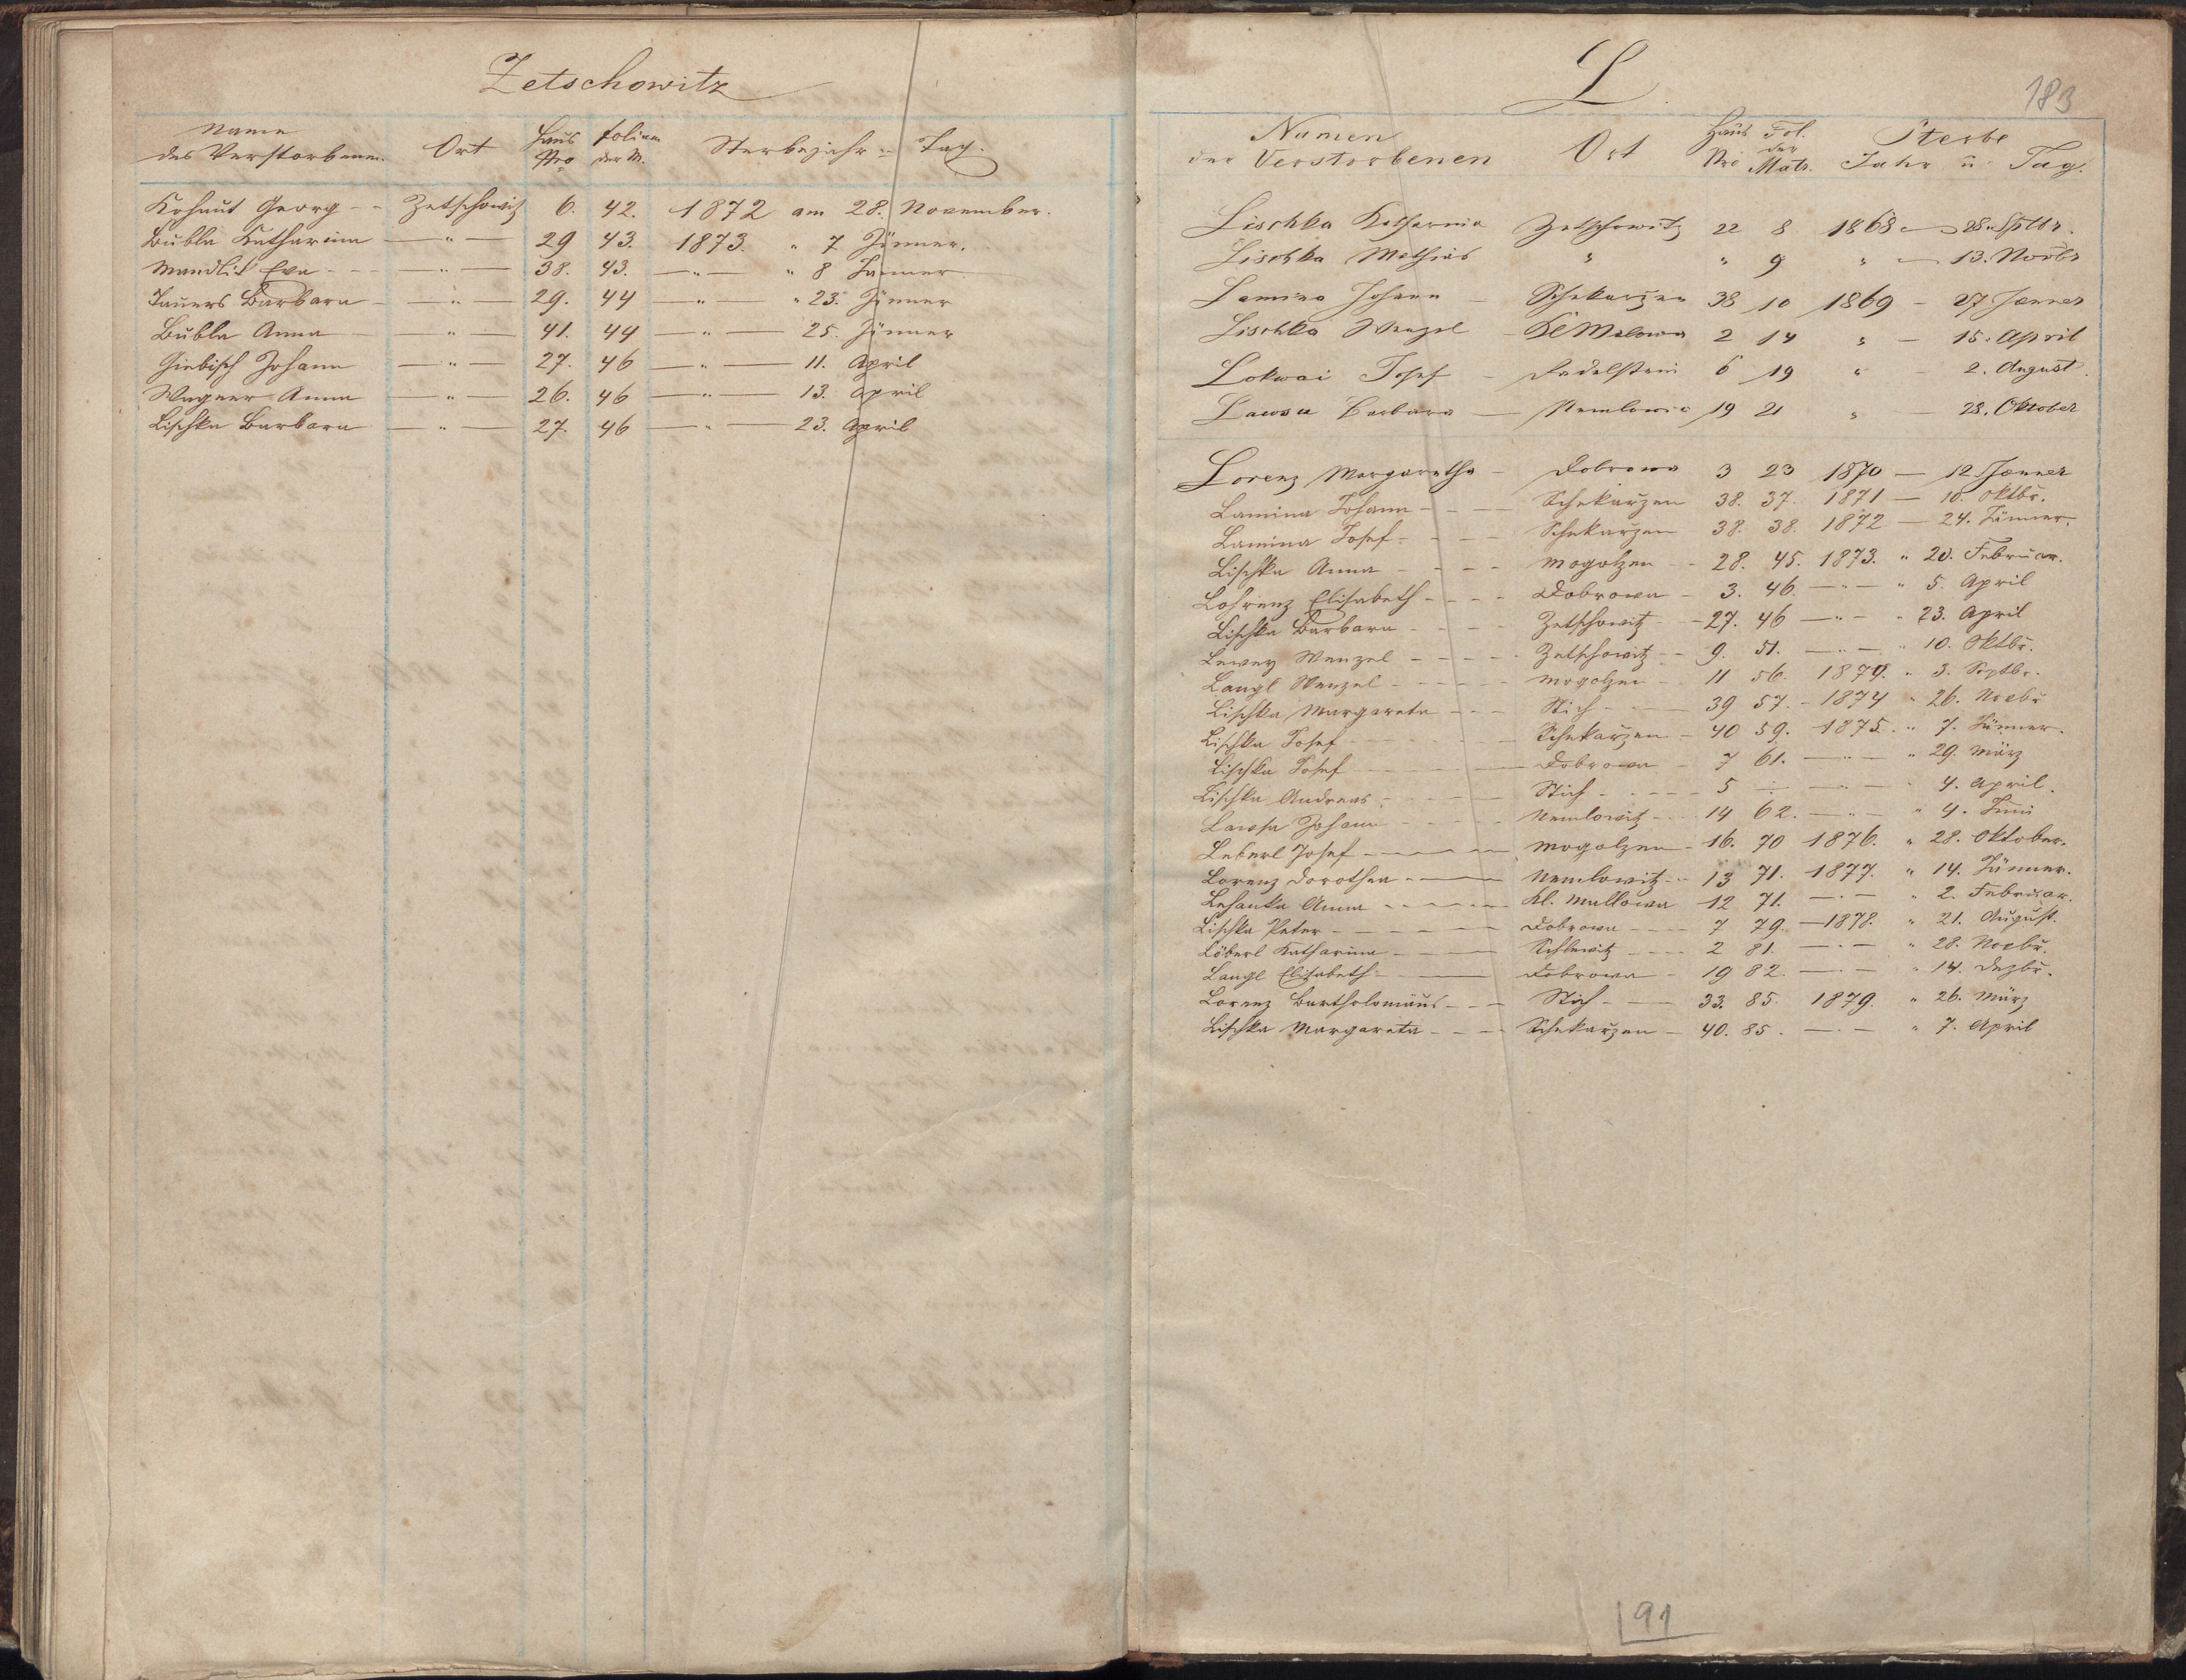 Zetschowitz
Name des Verstorbenen. Ort Haus Nro Folium der M. Sterbejahr u. Tag.
Kohaut Georg - - Zetschowitz 6. 42. 1872 am 28. November.
Bubla Katharina — " — 29 43. 1873. " 7 Jänner.
Mandlik Eva - - — " — 38. 43. — " — " 8 Jänner
Bauers Barbara - — " — 29. 44 — " — " 23. Jänner
Bubla Anna — " — 41. 44 — " — 25. Jänner
Giebisch Johann — " — 27. 46 — " — 11. April
Wagner Anna — " — 26. 46 — " — 13. April
Lischka Barbara — " — 27. 46 — " — 23. April
L
183
Namen der Verstorbenen Ort Haus Nro Fol. der Matr. Sterbe Jahr u Tag.
Lischka Katharina Zetschowitz 22 8 1868 — 28. Septbr.
Lischka Mathias " " 9 " — 13. Novbr
Lamina Johann - Schekarzen 38 10 1869 - 27 Jänner
Lischka Wenzel - Kl Malowa 2 14 " - 15. April
Lokwai Josef - Nadelstein 6 19 " - 2. August.
Lawsa Barbara — Nemlowic 19 21 " — 28. Oktober
Lorenz Margaretha - Dobrowa 3 23 1870 — 12 Jänner
Lamina Johann - - — Schekarzen 38. 37. 1871 — 10. Oktbr.
Lamina Josef - - — Schekarzen 38. 38. 1872 — 24. Jänner.
Lischka Anna - - - - Mogolzen - - 28. 45. 1873. " 20. Februar.
Lohrenz Elisabeth - - - - Dobrowa - 3. 46. — " — " 5. April
Lischka Barbara - - - Zetschowitz - - 27. 46 — " — " 23. April
Lewey Wenzel - - - - Zetschowitz - - 9. 51. — " — " 10. Oktbr.
Langl Wenzel - - - - Mogolzen - - 11 56. 1874. " 3. Septbr.
Lischka Margareta - - - Stich - - — 39 57. - 1874 " 26. Novbr
Lischka Josef - - - - Schekarzen - 40 59. - 1875. " 7. Jänner.
Lischka Josef - - - — Dobrowa - 7 61. — " — " 29. März
Lischka Andreas - - - — Stich - - - - 5 " — " — " 4. April.
Lawsa Johann - - - - Nemlowitz - - 14 62. — " — " 4. Juni
Leberl Josef - - - — Mogolzen - 16. 70 1876. " 28. Oktober.
Lorenz Dorothea - — Nemlowitz - - 13 71. 1877. " 14. Jänner.
Lehanka Anna - - - - Kl. Mallowa - 12 71. — " — " 2. Februar.
Lischka Peter - - - - — Dobrowa - - - 7 79. — 1878. " 21. August.
Löberl Katharina - - — - - - 2 81. — " — " 28. Novbr.
Langl Elisabeth - — Dobrowa - 19 82. — " — " 14. Dezbr.
Lorenz Bartholomäus - - — Stich - — 33. 85. 1879. " 26. März
Lischka Margareta - - — Schekarzen - 40. 85. — " — " 7. April
91